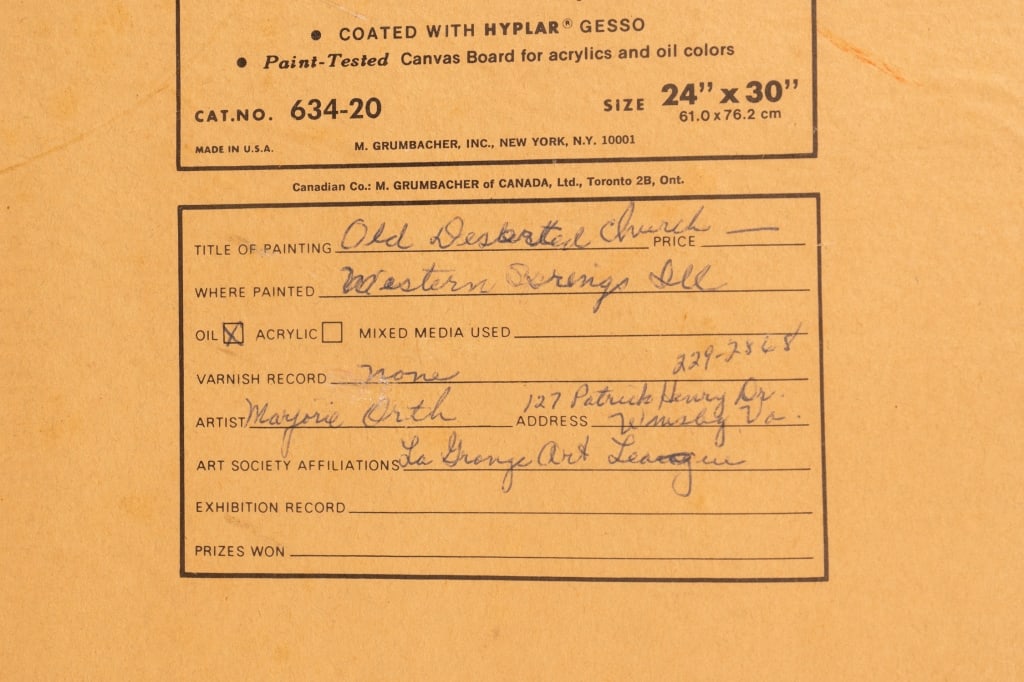 • COATED WITH HYPLAR® GESSO
• Paint-Tested Canvas Board for acrylics and oil colors
CAT.NO. 634-20 SIZE 24" x 30"
61.0 x 76.2 cm
MADE IN U.S.A. M. GRUMBACHER, INC., NEW YORK, N.Y. 10001
Canadian Co.: M. GRUMBACHER of CANADA, Ltd., Toronto 2B, Ont.
TITLE OF PAINTING Old Deserted Church PRICE —
WHERE PAINTED Western Springs Ill
OIL X ACRYLIC MIXED MEDIA USED
229-2868
VARNISH RECORD none
127 Patrick Henry Dr.
ARTIST Marjorie Orth ADDRESS Wmsbg Va.
ART SOCIETY AFFILIATIONS La Grange Art League
EXHIBITION RECORD
PRIZES WON